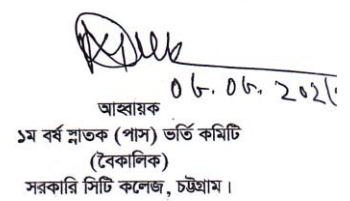 আহ্বায়ক
১ম বর্ষ স্নাতক (পাস) ভর্তি কমিটি
(বৈকালিক)
সরকারি সিটি কলেজ, চট্টগ্রাম।